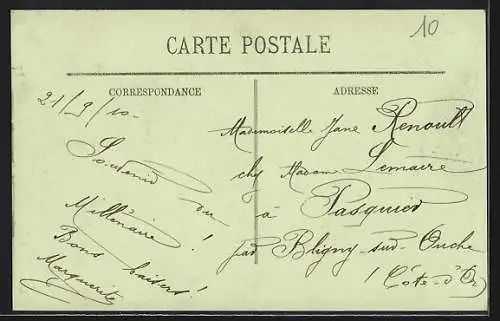 10
CARTE POSTALE
CORRESPONDANCE
21/9/10-
Souvenir du
Millénaire !
Bons baisers !
Marguerite
ADRESSE
Mademoiselle Jane Renoult
chez Madame Lemaire
à Pasquier
par Bligny-sur-Ouche
(Côte-d'Or)